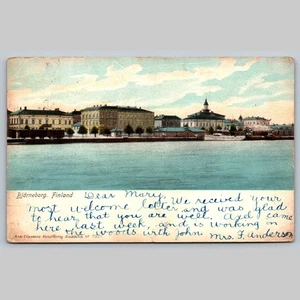 Björneborg. Finland
Dear Mary,
We received your
most welcome letter and was glad
to hear that you are well. And came
here last week, and is working in
the woods with John
Mrs. F. Anderson